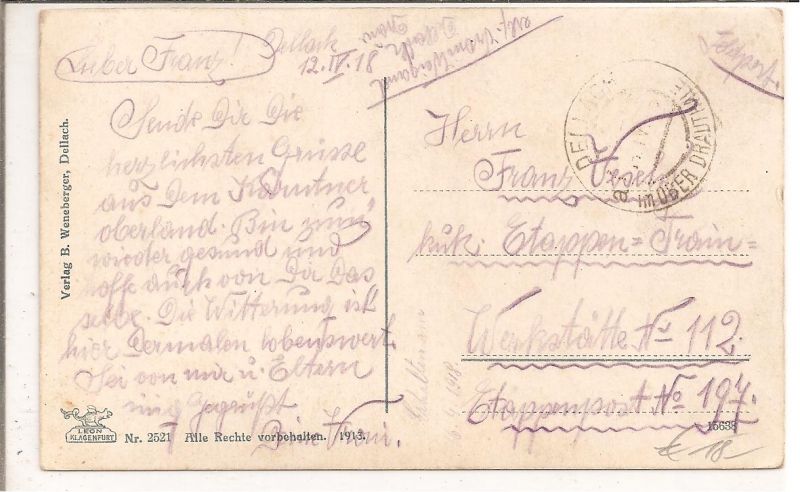 Lieber Franz!
Dellach
12. IV. 18
Sende Dir Die
herzlichsten Grüsse
aus dem Kärntner
oberland. Bin
wieder gesund und
hoffe auch von Dir Das
selbe. Die Witterung ist
hier Dermalen lobenswert.
Sei von mir u. Eltern
Gegrüßt
Dein
Verlag B. Weneberger, Dellach.
LEON
KLAGENFURT
Nr. 2521 Alle Rechte vorbehalten. 1913.
DELLACH
im OBER DRAUTALE
a
Herrn
Franz
kuk. Etappen=Train=
Werkstätte No 112.
Etappenpost No 197.
15638
€ 18